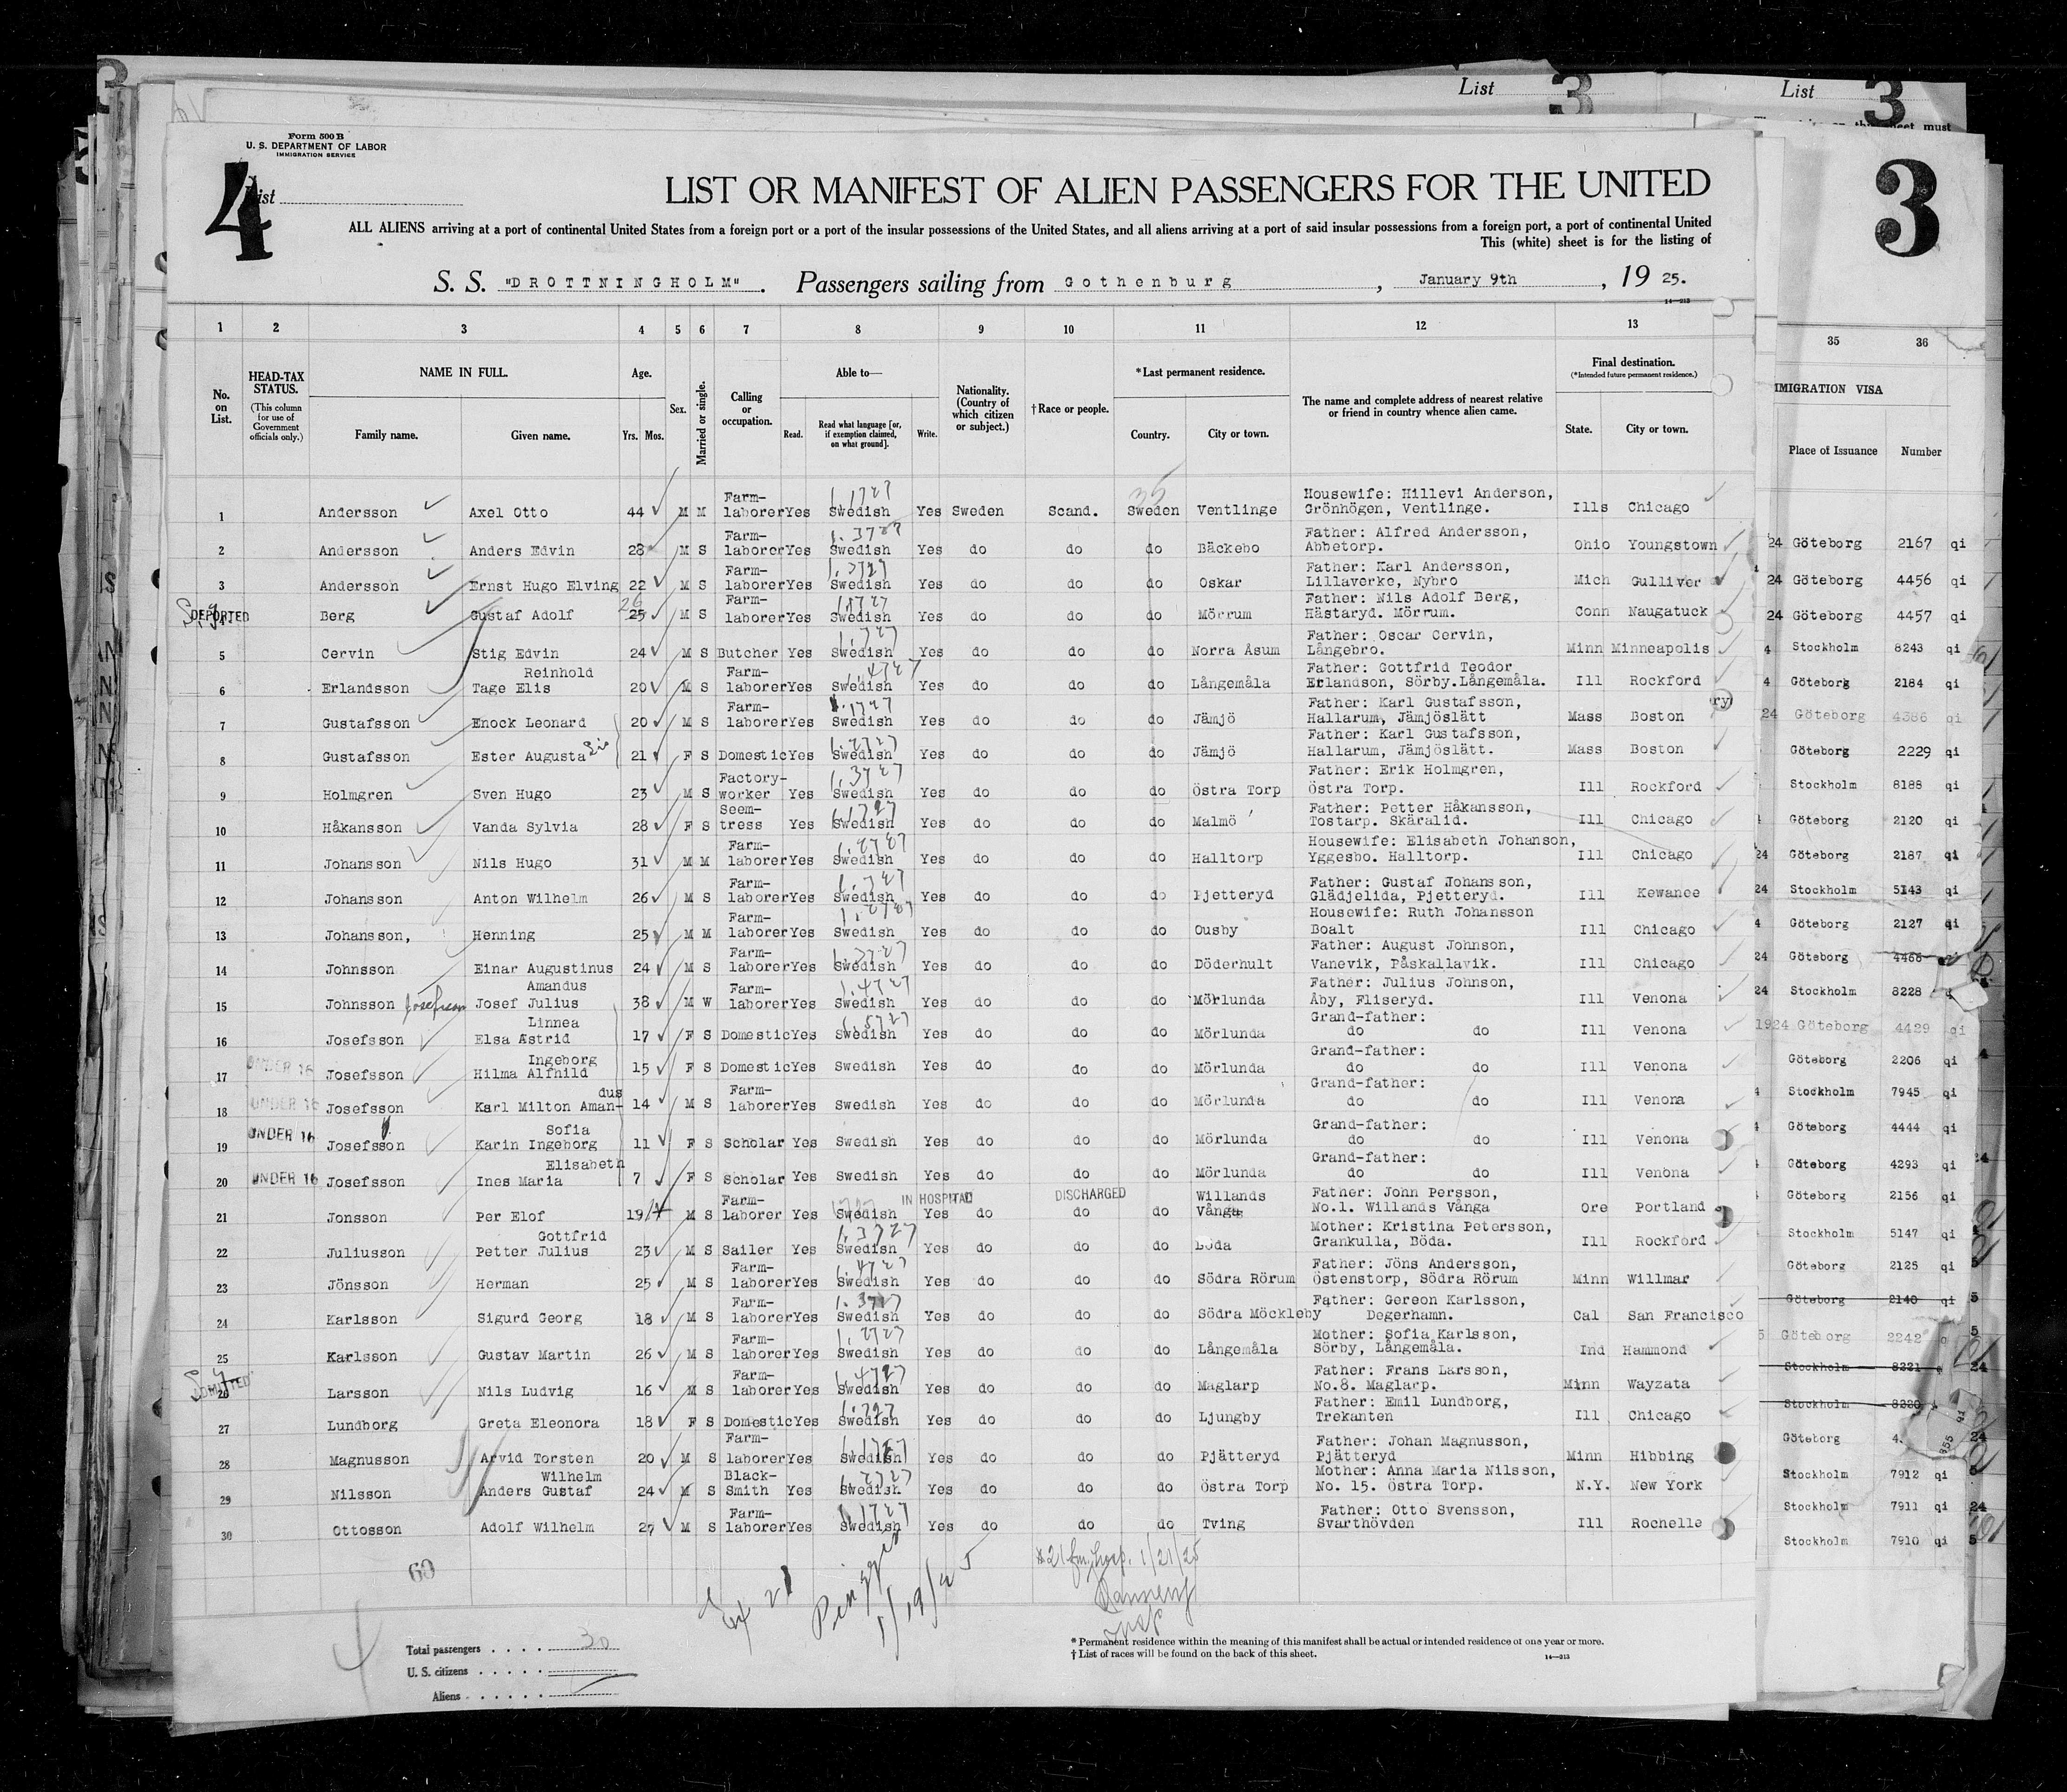 List 3
List 3
Form 500 B
U. S. DEPARTMENT OF LABOR
IMMIGRATION SERVICE
4
List
3
LIST OR MANIFEST OF ALIEN PASSENGERS FOR THE UNITED
ALL ALIENS arriving at a port of continental United States from a foreign port or a port of the insular possessions of the United States, and all aliens arriving at a port of said insular possessions from a foreign port, a port of continental United
This (white) sheet is for the listing of
S. S. "DROTTNINGHOLM". Passengers sailing from Gothenburg, January 9th, 19 25.
14—213
1 2 3 4 5 6 7 8 9 10 11 12 13
No. on List.
HEAD-TAX STATUS.
(This column for use of Government officials only.)
NAME IN FULL.
Family name. Given name.
Age.
Yrs. Mos.
Sex.
Married or single.
Calling or occupation.
Able to—
Read. Read what language [or, if exemption claimed, on what ground]. Write.
Nationality. (Country of which citizen or subject.)
† Race or people.
* Last permanent residence.
Country. City or town.
The name and complete address of nearest relative or friend in country whence alien came.
Final destination.
(* Intended future permanent residence.)
State. City or town.
1 Andersson Axel Otto 44 M M Farm-laborer Yes Swedish Yes Sweden Scand. Sweden Ventlinge Housewife: Hillevi Anderson, Grönhögen, Ventlinge. Ills Chicago
2 Andersson Anders Edvin 28 M S Farm-laborer Yes Swedish Yes do do do Bäckebo Father: Alfred Andersson, Abbetorp. Ohio Youngstown
3 Andersson Ernst Hugo Elving 22 M S Farm-laborer Yes Swedish Yes do do do Oskar Father: Karl Andersson, Lillaverke, Nybro Mich Gulliver
DEPORTED Berg Gustaf Adolf 25 26 M S Farm-laborer Yes Swedish Yes do do do Mörrum Father: Nils Adolf Berg, Hästaryd. Mörrum. Conn Naugatuck
5 Cervin Stig Edvin 24 M S Butcher Yes Swedish Yes do do do Norra Åsum Father: Oscar Cervin, Långebro. Minn Minneapolis
6 Erlandsson Tage Elis Reinhold 20 M S Farm-laborer Yes Swedish Yes do do do Långemåla Father: Gottfrid Teodor Erlandson, Sörby.Långemåla. Ill Rockford
7 Gustafsson Enock Leonard 20 M S Farm-laborer Yes Swedish Yes do do do Jämjö Father: Karl Gustafsson, Hallarum, Jämjöslätt Mass Boston
8 Gustafsson Ester Augusta Sis 21 F S Domestic Yes Swedish Yes do do do Jämjö Father: Karl Gustafsson, Hallarum, Jämjöslätt. Mass Boston
9 Holmgren Sven Hugo 23 M S Factory-worker Yes Swedish Yes do do do Östra Torp Father: Erik Holmgren, Östra Torp. Ill Rockford
10 Håkansson Vanda Sylvia 28 F S Seem-tress Yes Swedish Yes do do do Malmö Father: Petter Håkansson, Tostarp. Skäralid. Ill Chicago
11 Johansson Nils Hugo 31 M M Farm-laborer Yes Swedish Yes do do do Halltorp Housewife: Elisabeth Johanson, Yggesbo. Halltorp. Ill Chicago
12 Johansson Anton Wilhelm 26 M S Farm-laborer Yes Swedish Yes do do do Pjetteryd Father: Gustaf Johansson, Glädjelida, Pjetteryd. Ill Kewanee
13 Johansson, Henning 25 M M Farm-laborer Yes Swedish Yes do do do Ousby Housewife: Ruth Johansson Boalt Ill Chicago
14 Johnsson Einar Augustinus 24 M S Farm-laborer Yes Swedish Yes do do do Döderhult Father: August Johnson, Vanevik, Påskallavik. Ill Chicago
15 Johnsson Josefsson Josef Julius Amandus 38 M W Farm-laborer Yes Swedish Yes do do do Mörlunda Father: Julius Johnson, Åby, Fliseryd. Ill Venona
16 Josefsson Elsa Æstrid Linnea 17 F S Domestic Yes Swedish Yes do do do Mörlunda Grand-father: do do Ill Venona
17 UNDER 16 Josefsson Hilma Alfhild Ingeborg 15 F S Domestic Yes Swedish Yes do do do Mörlunda Grand-father: do do Ill Venona
18 UNDER 16 Josefsson Karl Milton Aman-dus 14 M S Farm-laborer Yes Swedish Yes do do do Mörlunda Grand-father: do do Ill Venona
19 UNDER 16 Josefsson Karin Ingeborg Sofia 11 F S Scholar Yes Swedish Yes do do do Mörlunda Grand-father: do do Ill Venona
20 UNDER 16 Josefsson Ines Maria Elisabeth 7 F S Scholar Yes Swedish Yes do do do Mörlunda Grand-father: do do Ill Venona
IN HOSPITAL DISCHARGED
21 Jonsson Per Elof 19 M S Farm-laborer Yes Swedish Yes do do do Willands Vånga Father: John Persson, No.1. Willands Vånga Ore Portland
22 Juliusson Petter Julius Gottfrid 23 M S Sailer Yes Swedish Yes do do do Böda Mother: Kristina Petersson, Grankulla, Böda. Ill Rockford
23 Jönsson Herman 25 M S Farm-laborer Yes Swedish Yes do do do Södra Rörum Father: Jöns Andersson, Östenstorp, Södra Rörum Minn Willmar
24 Karlsson Sigurd Georg 18 M S Farm-laborer Yes Swedish Yes do do do Södra Möckleby Father: Gereon Karlsson, Degerhamn. Cal San Francisco
25 Karlsson Gustav Martin 26 M S Farm-laborer Yes Swedish Yes do do do Långemåla Mother: Sofia Karlsson, Sörby, Långemåla. Ind Hammond
ADMITTED 26 Larsson Nils Ludvig 16 M S Farm-laborer Yes Swedish Yes do do do Maglarp Father: Frans Larsson, No.8. Maglarp. Minn Wayzata
27 Lundborg Greta Eleonora 18 F S Domestic Yes Swedish Yes do do do Ljungby Father: Emil Lundborg, Trekanten Ill Chicago
28 Magnusson Arvid Torsten 20 M S Farm-laborer Yes Swedish Yes do do do Pjätteryd Father: Johan Magnusson, Pjätteryd Minn Hibbing
29 Nilsson Anders Gustaf Wilhelm 24 M S Black-Smith Yes Swedish Yes do do do Östra Torp Mother: Anna Maria Nilsson, No. 15. Östra Torp. N.Y. New York
30 Ottosson Adolf Wilhelm 27 M S Farm-laborer Yes Swedish Yes do do do Tving Father: Otto Svensson, Svarthövden Ill Rochelle
60
1/19/25
#21 fm. hosp. 1/21/25
Insp
Total passengers . . . . 30
U. S. citizens . . . . .
Aliens . . . . . .
* Permanent residence within the meaning of this manifest shall be actual or intended residence of one year or more.
† List of races will be found on the back of this sheet.
14—213
35 36
IMMIGRATION VISA
Place of Issuance Number
24 Göteborg 2167 qi
24 Göteborg 4456 qi
24 Göteborg 4457 qi
4 Stockholm 8243 qi
4 Göteborg 2184 qi
24 Göteborg 4386 qi
Göteborg 2229 qi
Stockholm 8188 qi
Göteborg 2120 qi
24 Göteborg 2187 qi
24 Stockholm 5143 qi
4 Göteborg 2127 qi
24 Göteborg 4466
24 Stockholm 8228
1924 Göteborg 4429 qi
Göteborg 2206 qi
4 Stockholm 7945 qi
Göteborg 4444 qi
Göteborg 4293 qi
Göteborg 2156 qi
Stockholm 5147 qi
Göteborg 2125 qi
Göteborg 2140 qi
5 Göteborg 2242
Stockholm 8221
Stockholm 8220
Göteborg
Stockholm 7912 qi
Stockholm 7911 qi
Stockholm 7910 qi